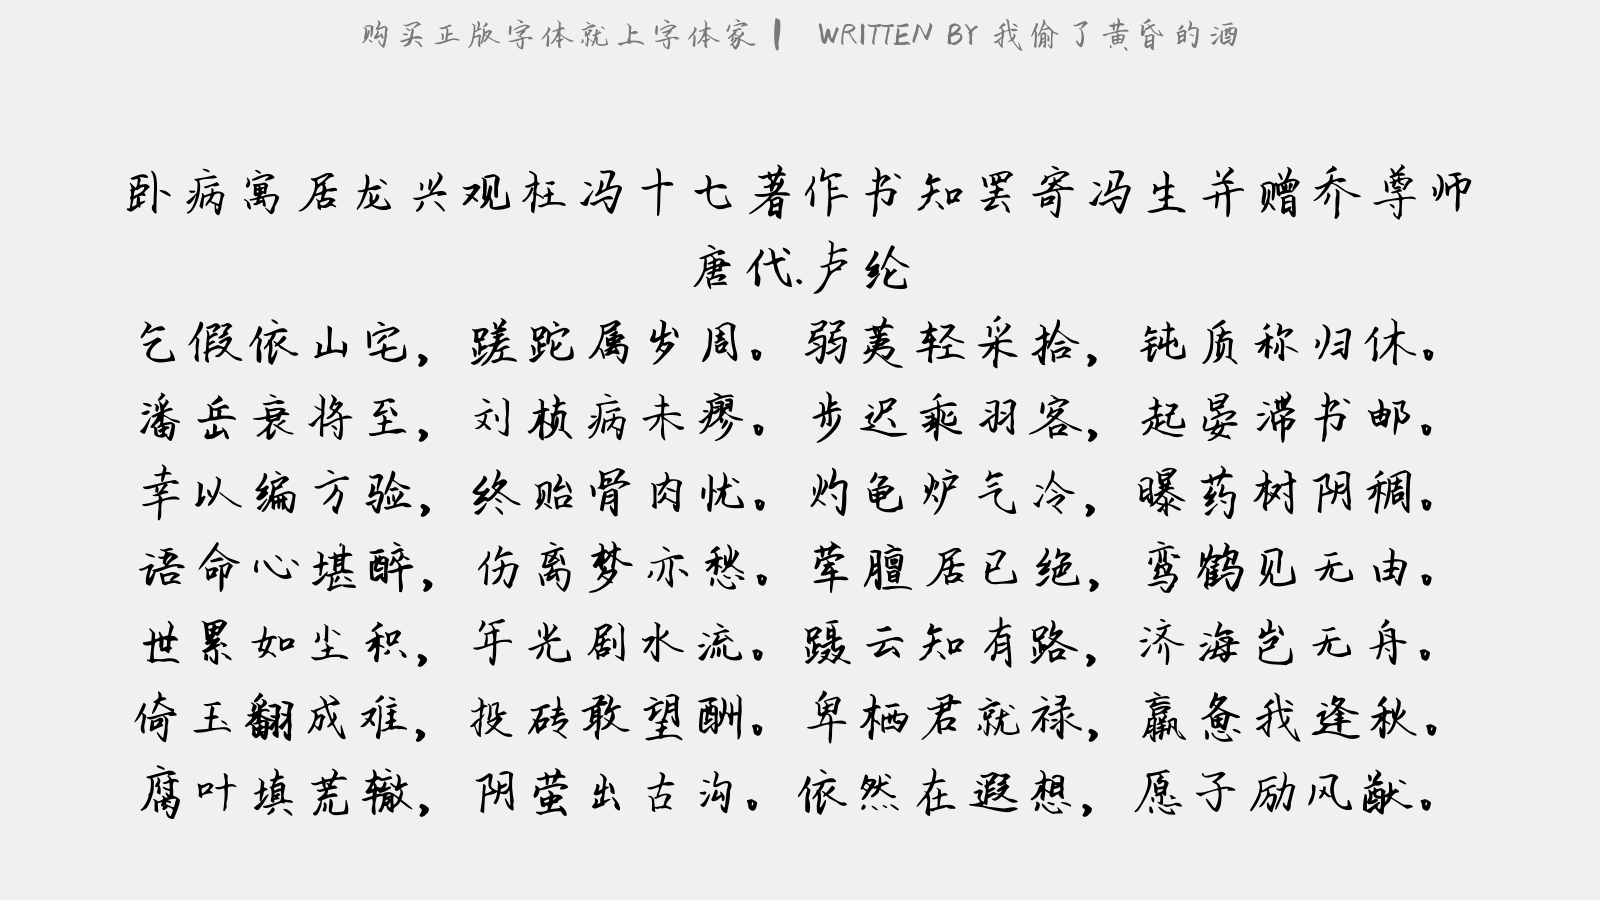 购买正版字体就上字体家 | WRITTEN BY 我偷了黄昏的酒
卧病寓居龙兴观枉冯十七著作书知罢寄冯生并赠乔尊师
唐代.卢纶
乞假依山宅，蹉跎属岁周。弱荑轻采拾，钝质称归休。
潘岳衰将至，刘桢病未瘳。步迟乘羽客，起晏滞书邮。
幸以编方验，终贻骨肉忧。灼龟炉气冷，曝药树阴稠。
语命心堪醉，伤离梦亦愁。荤膻居已绝，鸾鹤见无由。
世累如尘积，年光剧水流。蹑云知有路，济海岂无舟。
倚玉翻成难，投砖敢望酬。卑栖君就禄，羸惫我逢秋。
腐叶填荒辙，阴萤出古沟。依然在遐想，愿子励风猷。